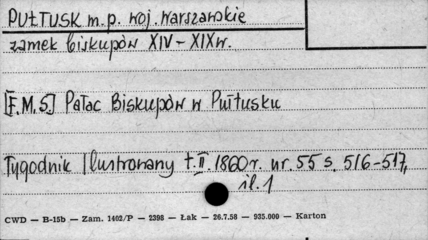 PUŁTUSK m.p. woj. warszawskie
zamek biskupów XIV – XIX w.
[F.M.S] Pałac Biskupów w Pułtusku
Tygodnik Ilustrowany t. II. 1860 r. nr. 55 s. 516-517,
il. 1
CWD — B-15b — Zam. 1402/P — 2398 — Łak — 26.7.58 — 935.000 — Karton